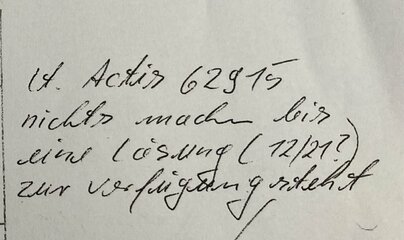 lt. Actis 62915
nichts machen bis
eine Lösung (12/21?)
zur verfügung steht